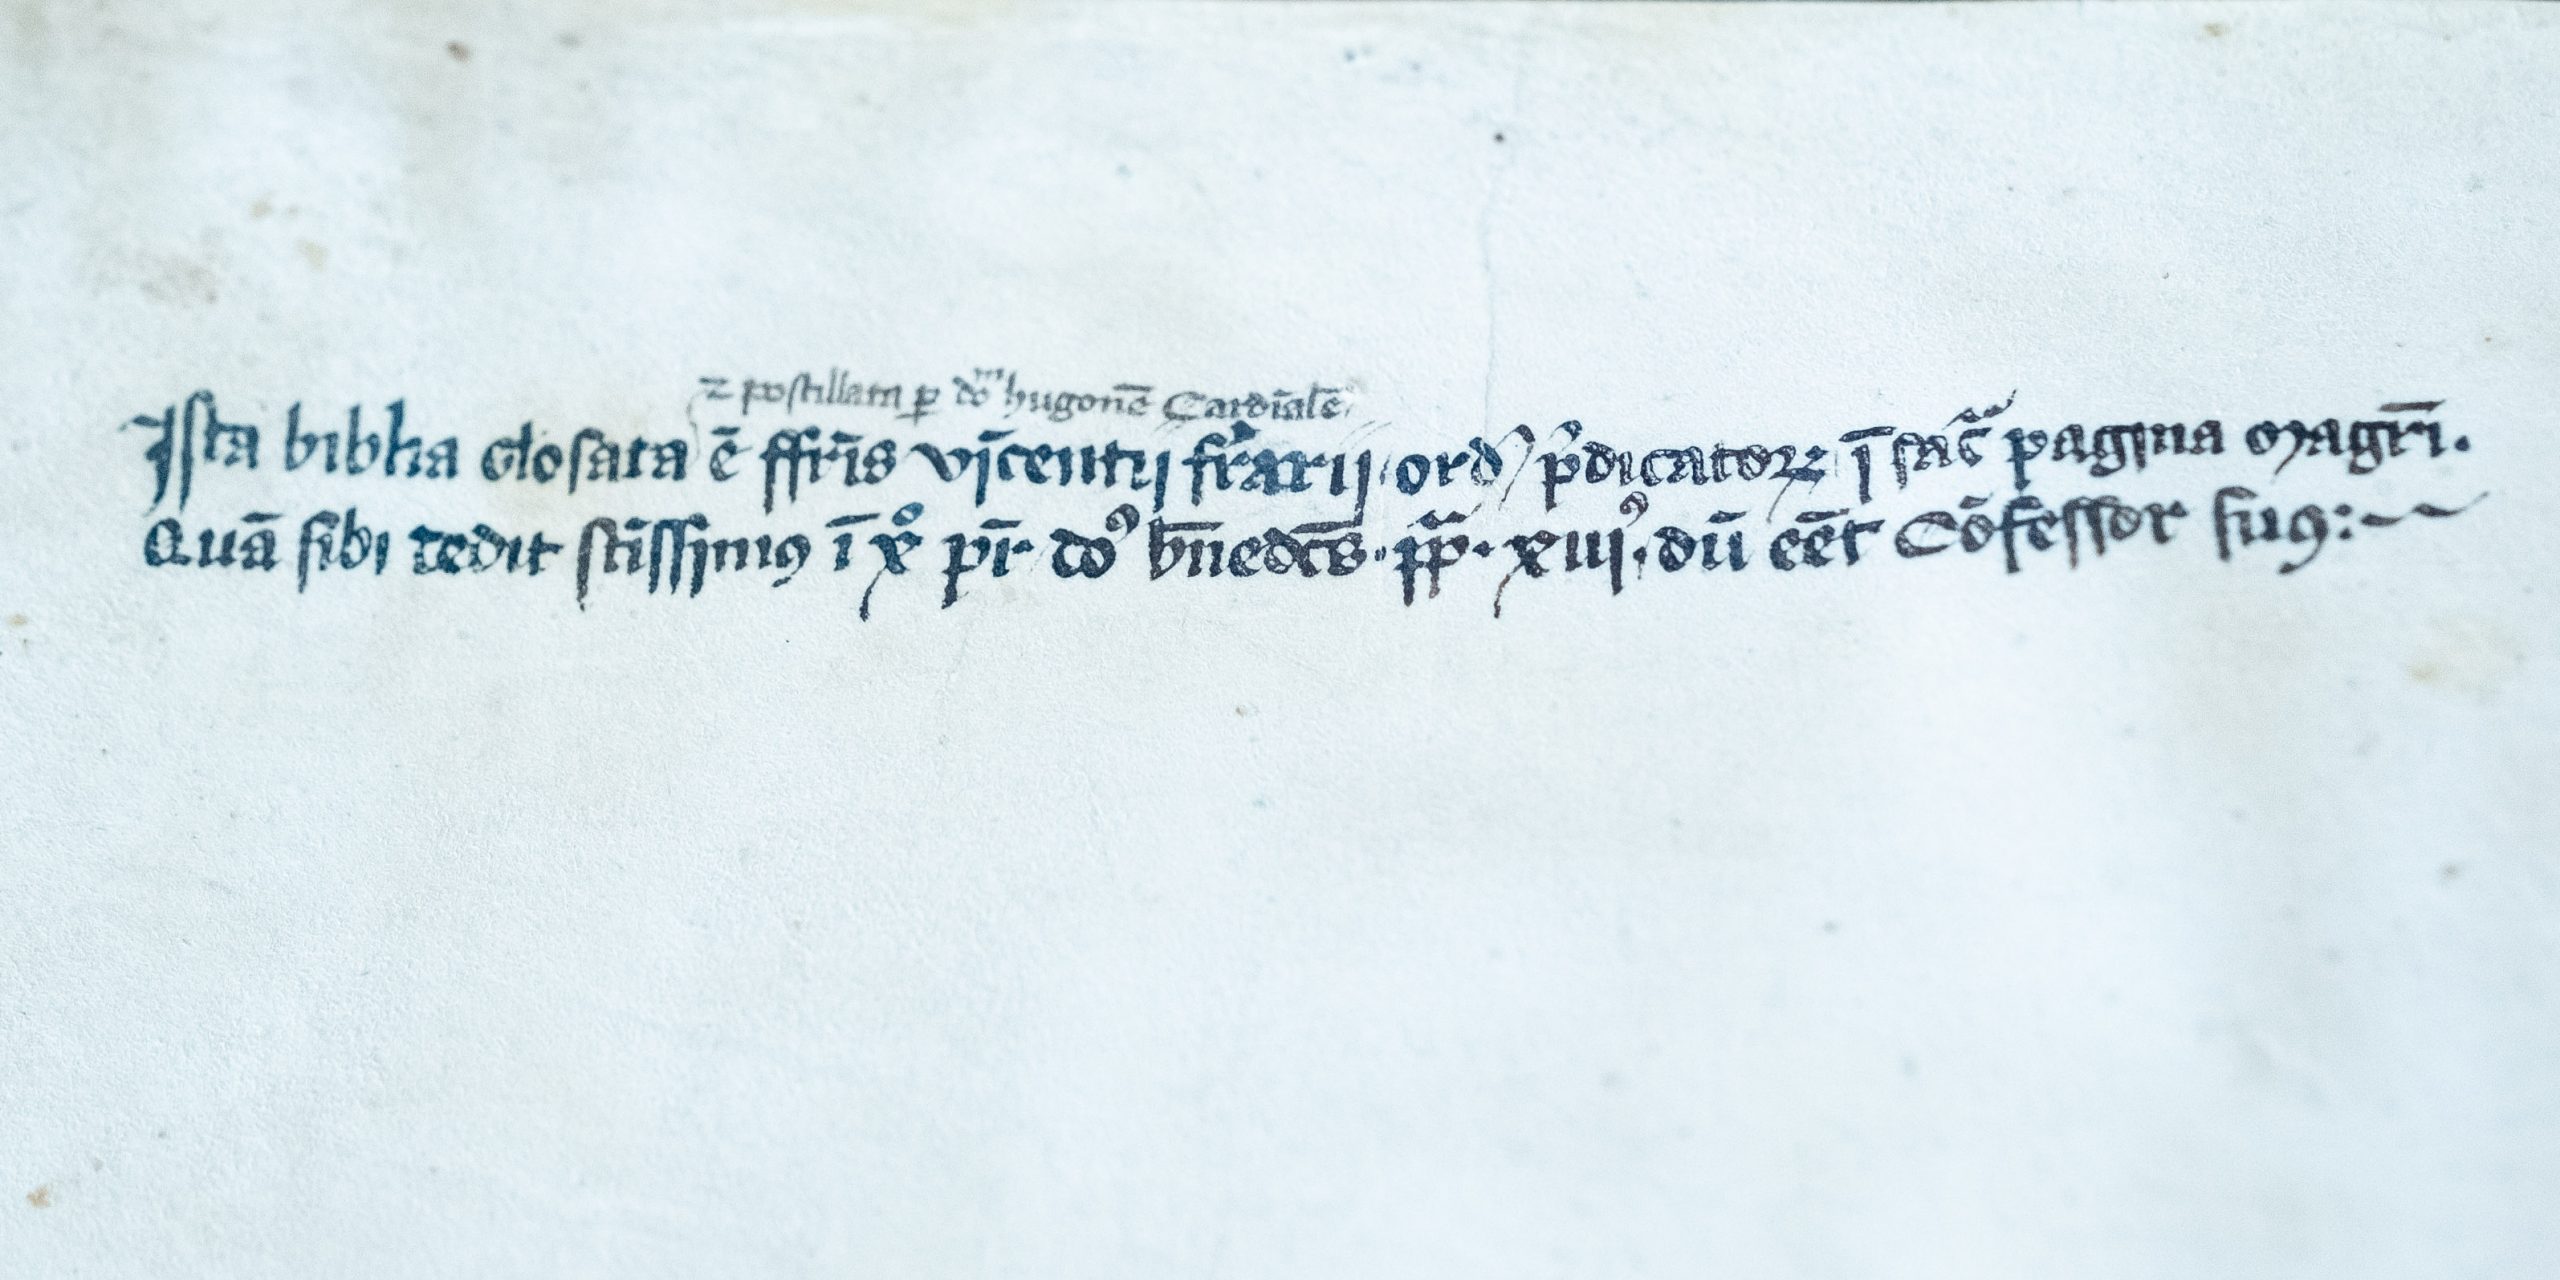 ⁊ postillata ꝑ do᷒ᵐ hugonē Cardīalē
Ista biblia glosata ē ffrīs vīcentij frarij ord' p̄dicatoꝝ ī sac̄ pagina magrī.
Quā sibi dedit sc̄issimꝰ ī xᵒ pr̄ doꝰ bn̄edcs̄ · pp̄ · xiijꝰ. dū eēt Cōfessor suꝰ:~